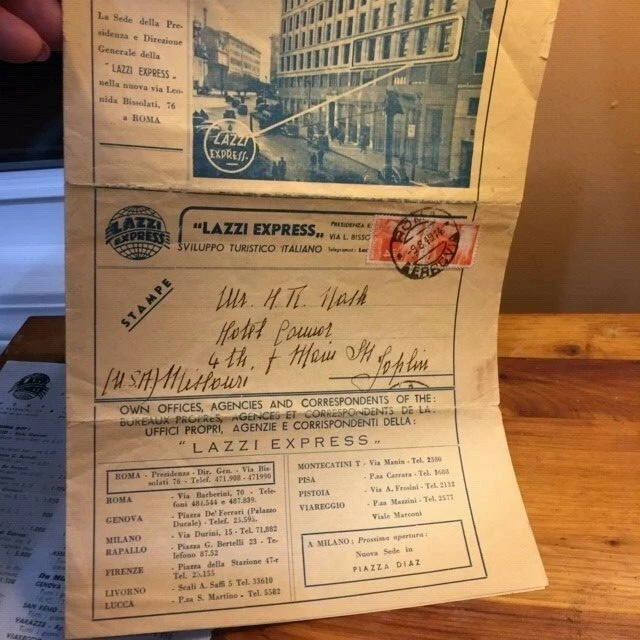 La Sede della Pre-
sidenza e Direzione
Generale della
"LAZZI EXPRESS„
nella nuova via Leo-
nida Bissolati, 76
a ROMA
LAZZI
EXPRESS
LAZZI
EXPRESS
"LAZZI EXPRESS"
SVILUPPO TURISTICO ITALIANO
PRESIDENZA E
VIA L. BISSO
Telegrammi:
ROMA
FERROVIA
STAMPE
Mr. H. R. Nash
Hotel Connor
4 th. & Main St Joplin
(USA) Missouri
OWN OFFICES, AGENCIES AND CORRESPONDENTS OF THE:
BUREAUX PROPRES, AGENCES ET CORRESPONDENTS DE LA:
UFFICI PROPRI, AGENZIE E CORRISPONDENTI DELLA:
"LAZZI EXPRESS„
ROMA - Presidenza - Dir. Gen. - Via Bis-
solati 76 - Telef. 471.908 - 471990
ROMA - Via Barberini, 70 - Tele-
foni 487.544 e 487.839.
GENOVA - Piazza De' Ferrari (Palazzo
Ducale) - Telef. 25.595.
MILANO - Via Durini, 15 - Tel. 71,882
RAPALLO - Piazza G. Bertelli 23 - Te-
lefono 87.52
FIRENZE - Piazza della Stazione 47-r
Tel. 25.155
LIVORNO - Scali A. Saffi 5 Tel. 33610
LUCCA - P.za S. Martino - Tel. 5582
MONTECATINI T - Via Manin - Tel. 2380
PISA - P.za Carrara - Tel. 3688
PISTOIA - Via A. Frosini - Tel. 2132
VIAREGGIO - P.za Mazzini - Tel. 2577
Viale Marconi
A MILANO: Prossima apertura:
Nuova Sede in
PIAZZA DIAZ
LAZZI
EXPRESS
GENOVA
SAN REMO
VARAZZE